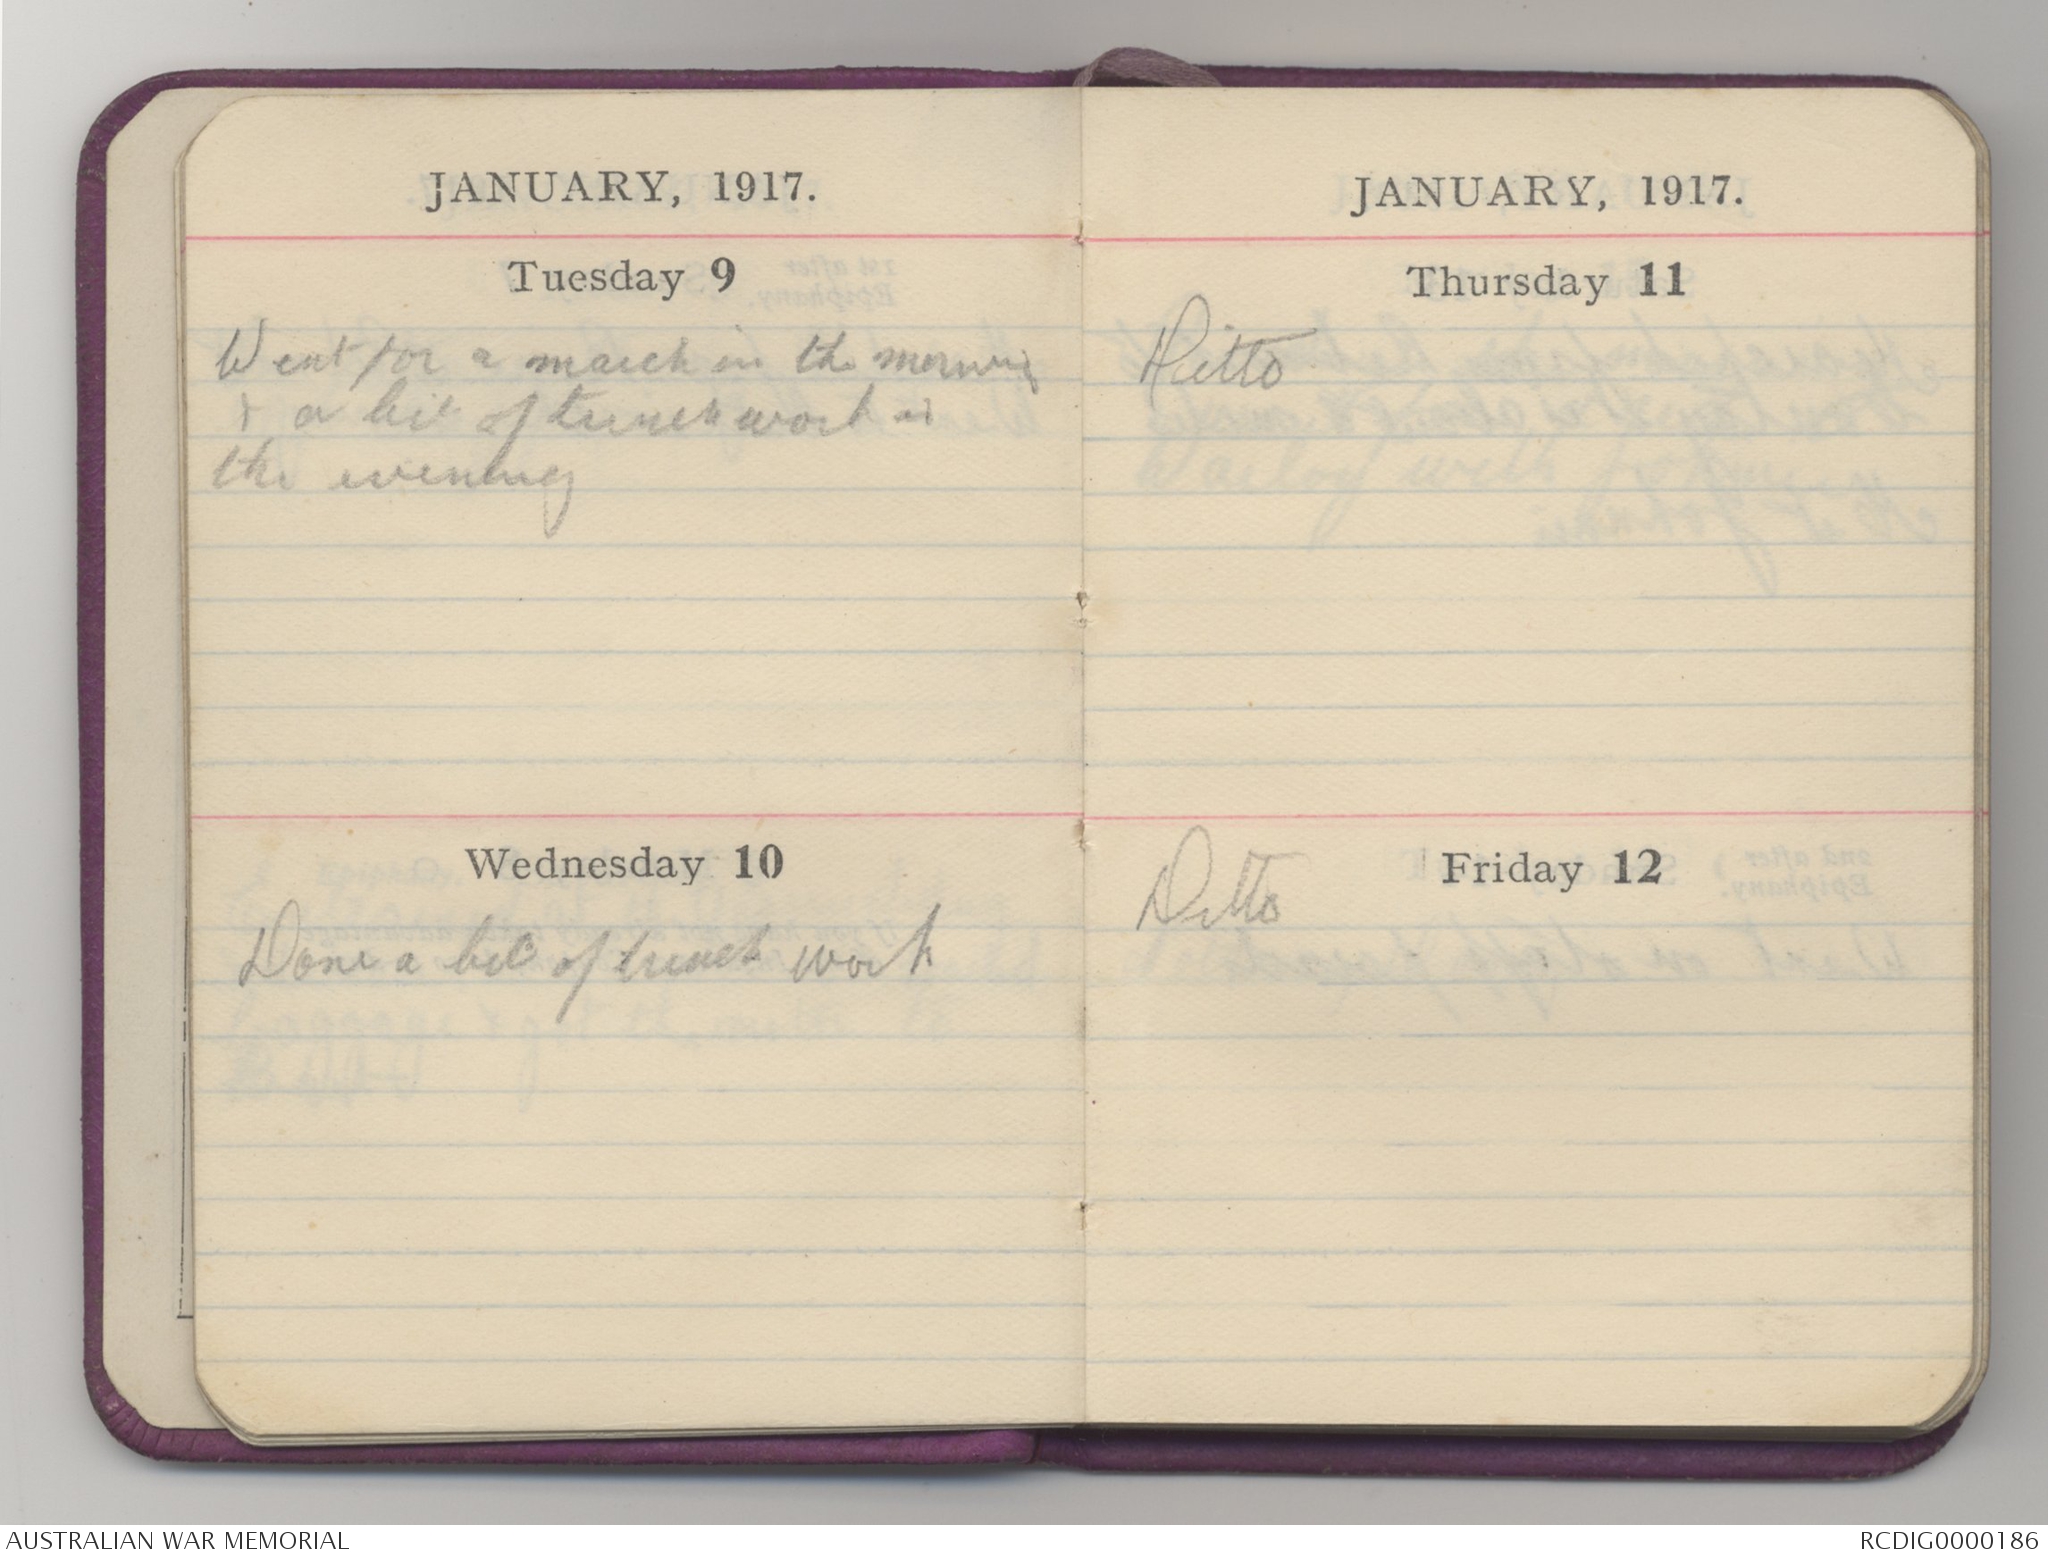 JANUARY, 1917.
Tuesday 9
Went for a march in the morning
& a bit of trench work in
the evening
Wednesday 10
Done a bit of trench work
JANUARY, 1917.
Thursday 11
Ditto
Friday 12
Ditto
AUSTRALIAN WAR MEMORIAL
RCDIG0000186